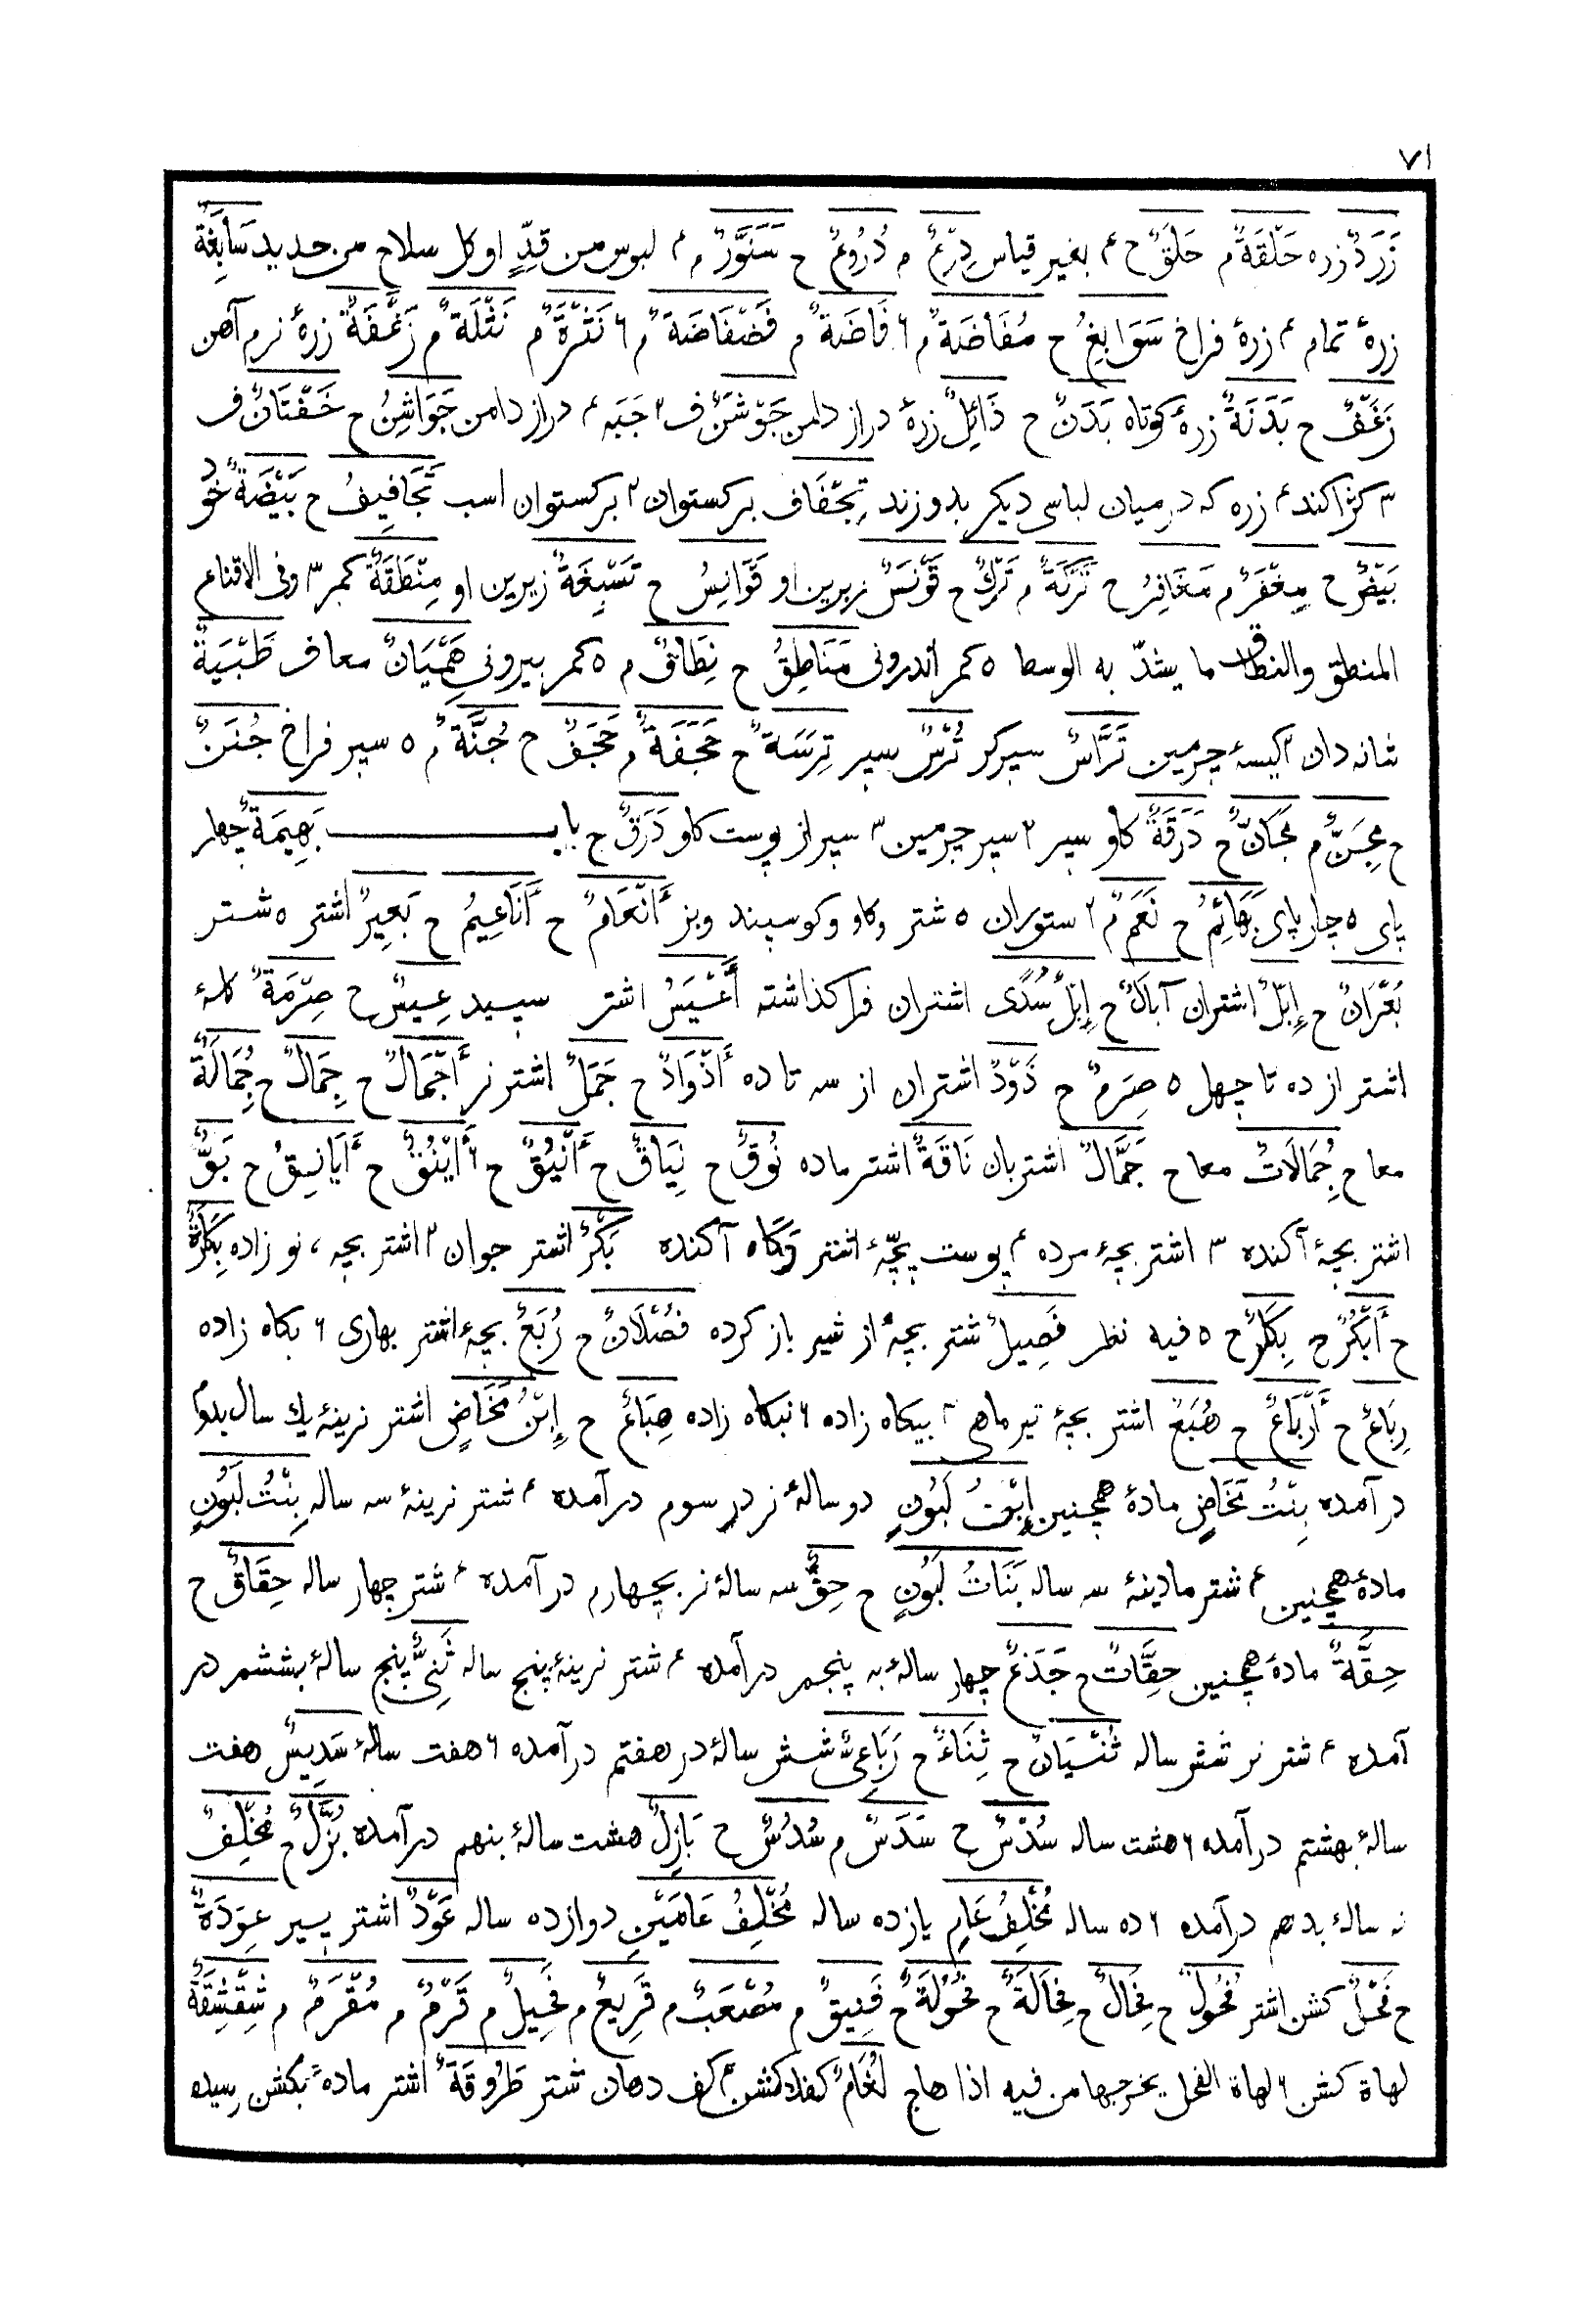 ٧١
زَرَدٌ زره حَلْقَةٌ م حَلَقٌ ح ٤ بغیر قیاس دِرْعٌ م دُرُوعٌ ح سَنَوَّرٌ م ٤ لبوس من قِدٍّ او کل سلاح من حدید سَابِغَةٌ
زرهٔ تمام ٤ زرهٔ فراخ سَوَابِغُ ح مُفَاضَةٌ م ٦ فَاضَةٌ م فَضْفَاضَةٌ م ٦ نَثْرَةٌ م نَثْلَةٌ م زَغْفَةٌ زرهٔ نرم آهن
زَغْفٌ ح بَدَنَةٌ زرهٔ کوتاه بَدَنٌ ح ذَائِلٌ زرهٔ دراز دامن جَوْشَنٌ ف ٢ جَبَه ٤ دراز دامن جَوَاشِنُ ح خَفْتَانٌ ف
٣ کژاکند ٤ زره که در میان لباسی دیکر بدوزند تِجْفَاف برکستوان ٢ برکستوان اسب تَجَافِیفُ ح بَیْضَةٌ خود
بَیْضٌ ح مِغْفَرٌ م مَغَافِرُ ح تَرْکَةٌ م تَرْکٌ ح قَوْنَسٌ زبرین او قَوَانِسُ ح تَسْبِغَةٌ زیرین او مِنْطَقَةٌ کمر ٣ وفی الاقناع
المنطق والنطاق ما یشدّ به الوسط ٥ کمر اندرونی مَنَاطِقُ ح نِطَاقٌ م ٥ کمر بیرونی هِمْیَانٌ معاف ظَبْیَةٌ
شانه دان ٢ کیسهٔ چرمین تَرَّاسٌ سپرکر تُرْسٌ سپر تِرَسَةٌ ح حَجَفَةٌ م حَجَفٌ ح جُنَّةٌ م ٥ سپر فراخ جُنَنٌ
ح مِجَنٌّ م مَجَانٌّ ح دَرَقَةٌ کاو سپر ٢ سپر چرمین ٣ سپر از پوست کاو دَرَقٌ ح باب بَهِیمَةٌ چهار
پای ٥ چارپای بَهَائِمُ ح نَعَمٌ م ٢ ستوران ٥ شتر وکاو وکوسپند وبز أَنْعَامٌ ح أَنَاعِیمُ ح بَعِیرٌ اشتر ٥ شتر
بُعْرَانٌ ح إِبِلٌ اشتران آبَالٌ ح إِبِلٌ سُدًی اشتران فراکذاشته أَعْیَسُ اشتر سپید عِیسٌ ح صِرْمَةٌ کلهٔ
اشتر از ده تا چهل ٥ صِرَمٌ ح ذَوْدٌ اشتران از سه تا ده أَذْوَادٌ ح جَمَلٌ اشتر نر أَجْمَالٌ ح جِمَالٌ ح جِمَالَةٌ
معا ح جِمَالَاتٌ معا ح جَمَّالٌ اشتربان نَاقَةٌ اشتر ماده نُوقٌ ح نِیَاقٌ ح أَنْیُقٌ ح ٦ أَیْنُقٌ ح أَیَانِقُ ح بَوٌّ
اشتر بچهٔ آکنده ٣ اشتر بچهٔ مرده ٤ پوست بچّهٔ اشتر وکاه آکنده بَکْرٌ اشتر جوان ٢ اشتر بچه ، نو زاده بِکَارَةٌ
ح أَبْکُرٌ ح بِکَارٌ ح ٥ فیه نظر فَصِیلٌ شتر بچهٔ از شیر باز کرده فُصْلَانٌ ح رُبَعٌ بچهٔ اشتر بهاری ٦ بکاه زاده
رِبَاعٌ ح أَرْبَاعٌ ح هُبَعٌ اشتر بچهٔ تیر ماهی ٢ بیکاه زاده ٦ نبکاه زاده هِبَاعٌ ح إِبْنُ مَخَاضٍ اشتر نرینهٔ یك سال بدوم
در آمده بِنْتُ مَخَاضٍ مادهٔ همچنین إِبْنُ لَبُونٍ دو سالهٔ نر در سوم در آمده ٤ شتر نرینهٔ سه ساله بِنْتُ لَبُونٍ
مادهٔ همچنین ٤ شتر مادینهٔ سه ساله بَنَاتُ لَبُونٍ ح حِقٌّ سه سالهٔ نر بچهارم در آمده ٤ شتر چهار ساله حِقَاقٌ ح
حِقَّةٌ مادهٔ همچنین حِقَّاتٌ ح جَذَعٌ چهار سالهٔ به پنجم در آمده ٤ شتر نرینهٔ پنج ساله ثَنِیٌّ پنج سالهٔ بششم در
آمده ٤ شتر نر شش ساله ثُنْیَانٌ ح ثِنَاءٌ ح رَبَاعِیٌّ شش سالهٔ در هفتم در آمده ٦ هفت سالهٔ سَدِیسٌ هفت
سالهٔ بهشتم در آمده ٦ هشت ساله سُدْسٌ ح سَدَسٌ م سُدُسٌ ح بَازِلٌ هشت سالهٔ بنهم در آمده بُزَّلٌ ح مُخْلِفٌ
نه سالهٔ بدهم در آمده ٦ ده ساله مُخْلِفُ عَامٍ یازده ساله مُخْلِفُ عَامَیْنِ دوازده ساله عَوْدٌ اشتر پیر عِوَدَةٌ
ح فَحْلٌ کشن اشتر فُحُولٌ ح فِحَالٌ ح فِحَالَةٌ ح فُحُولَةٌ ح فَنِیقٌ م مُصْعَبٌ م قَرِیعٌ م فَحِیلٌ م قَرْمٌ م مُقْرَمٌ م شِقْشِقَةٌ
لهاة کشن ٦ لهاة الفحل یخرجها من فیه اذا هاج لُغَامٌ کفك کشن ٢ کف دهان شتر طَرُوقَةٌ اشتر مادهٔ بکشن رسیده